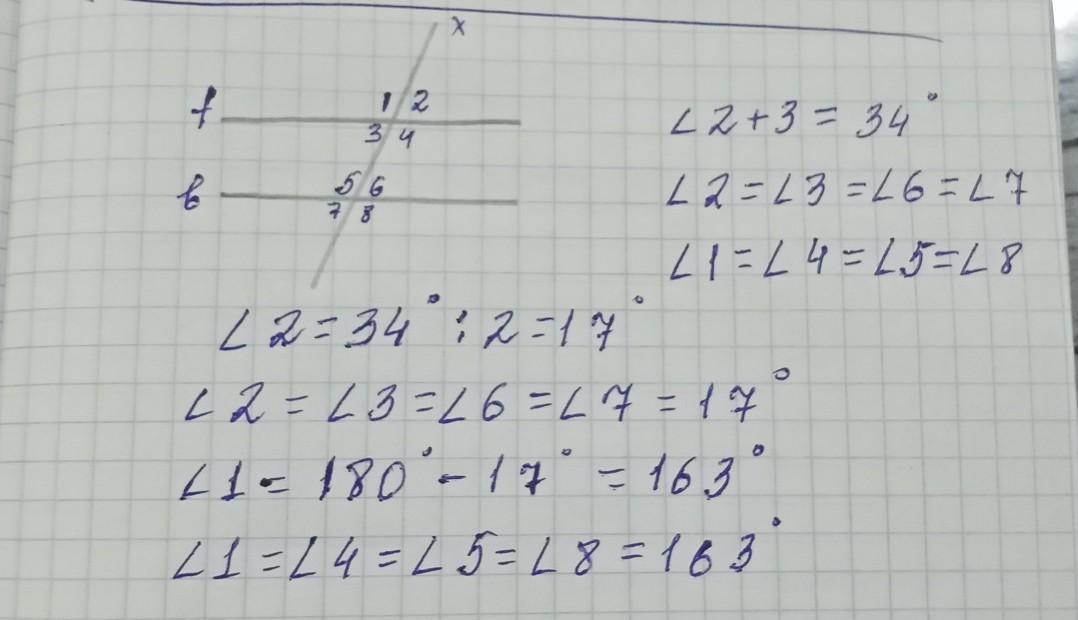 x
f 1 2
3 4
b 5 6
7 8
∠2+3 = 34°
∠2=∠3=∠6=∠7
∠1=∠4=∠5=∠8
∠2=34°:2=17°
∠2=∠3=∠6=∠7=17°
∠1=180°-17°=163°
∠1=∠4=∠5=∠8=163°